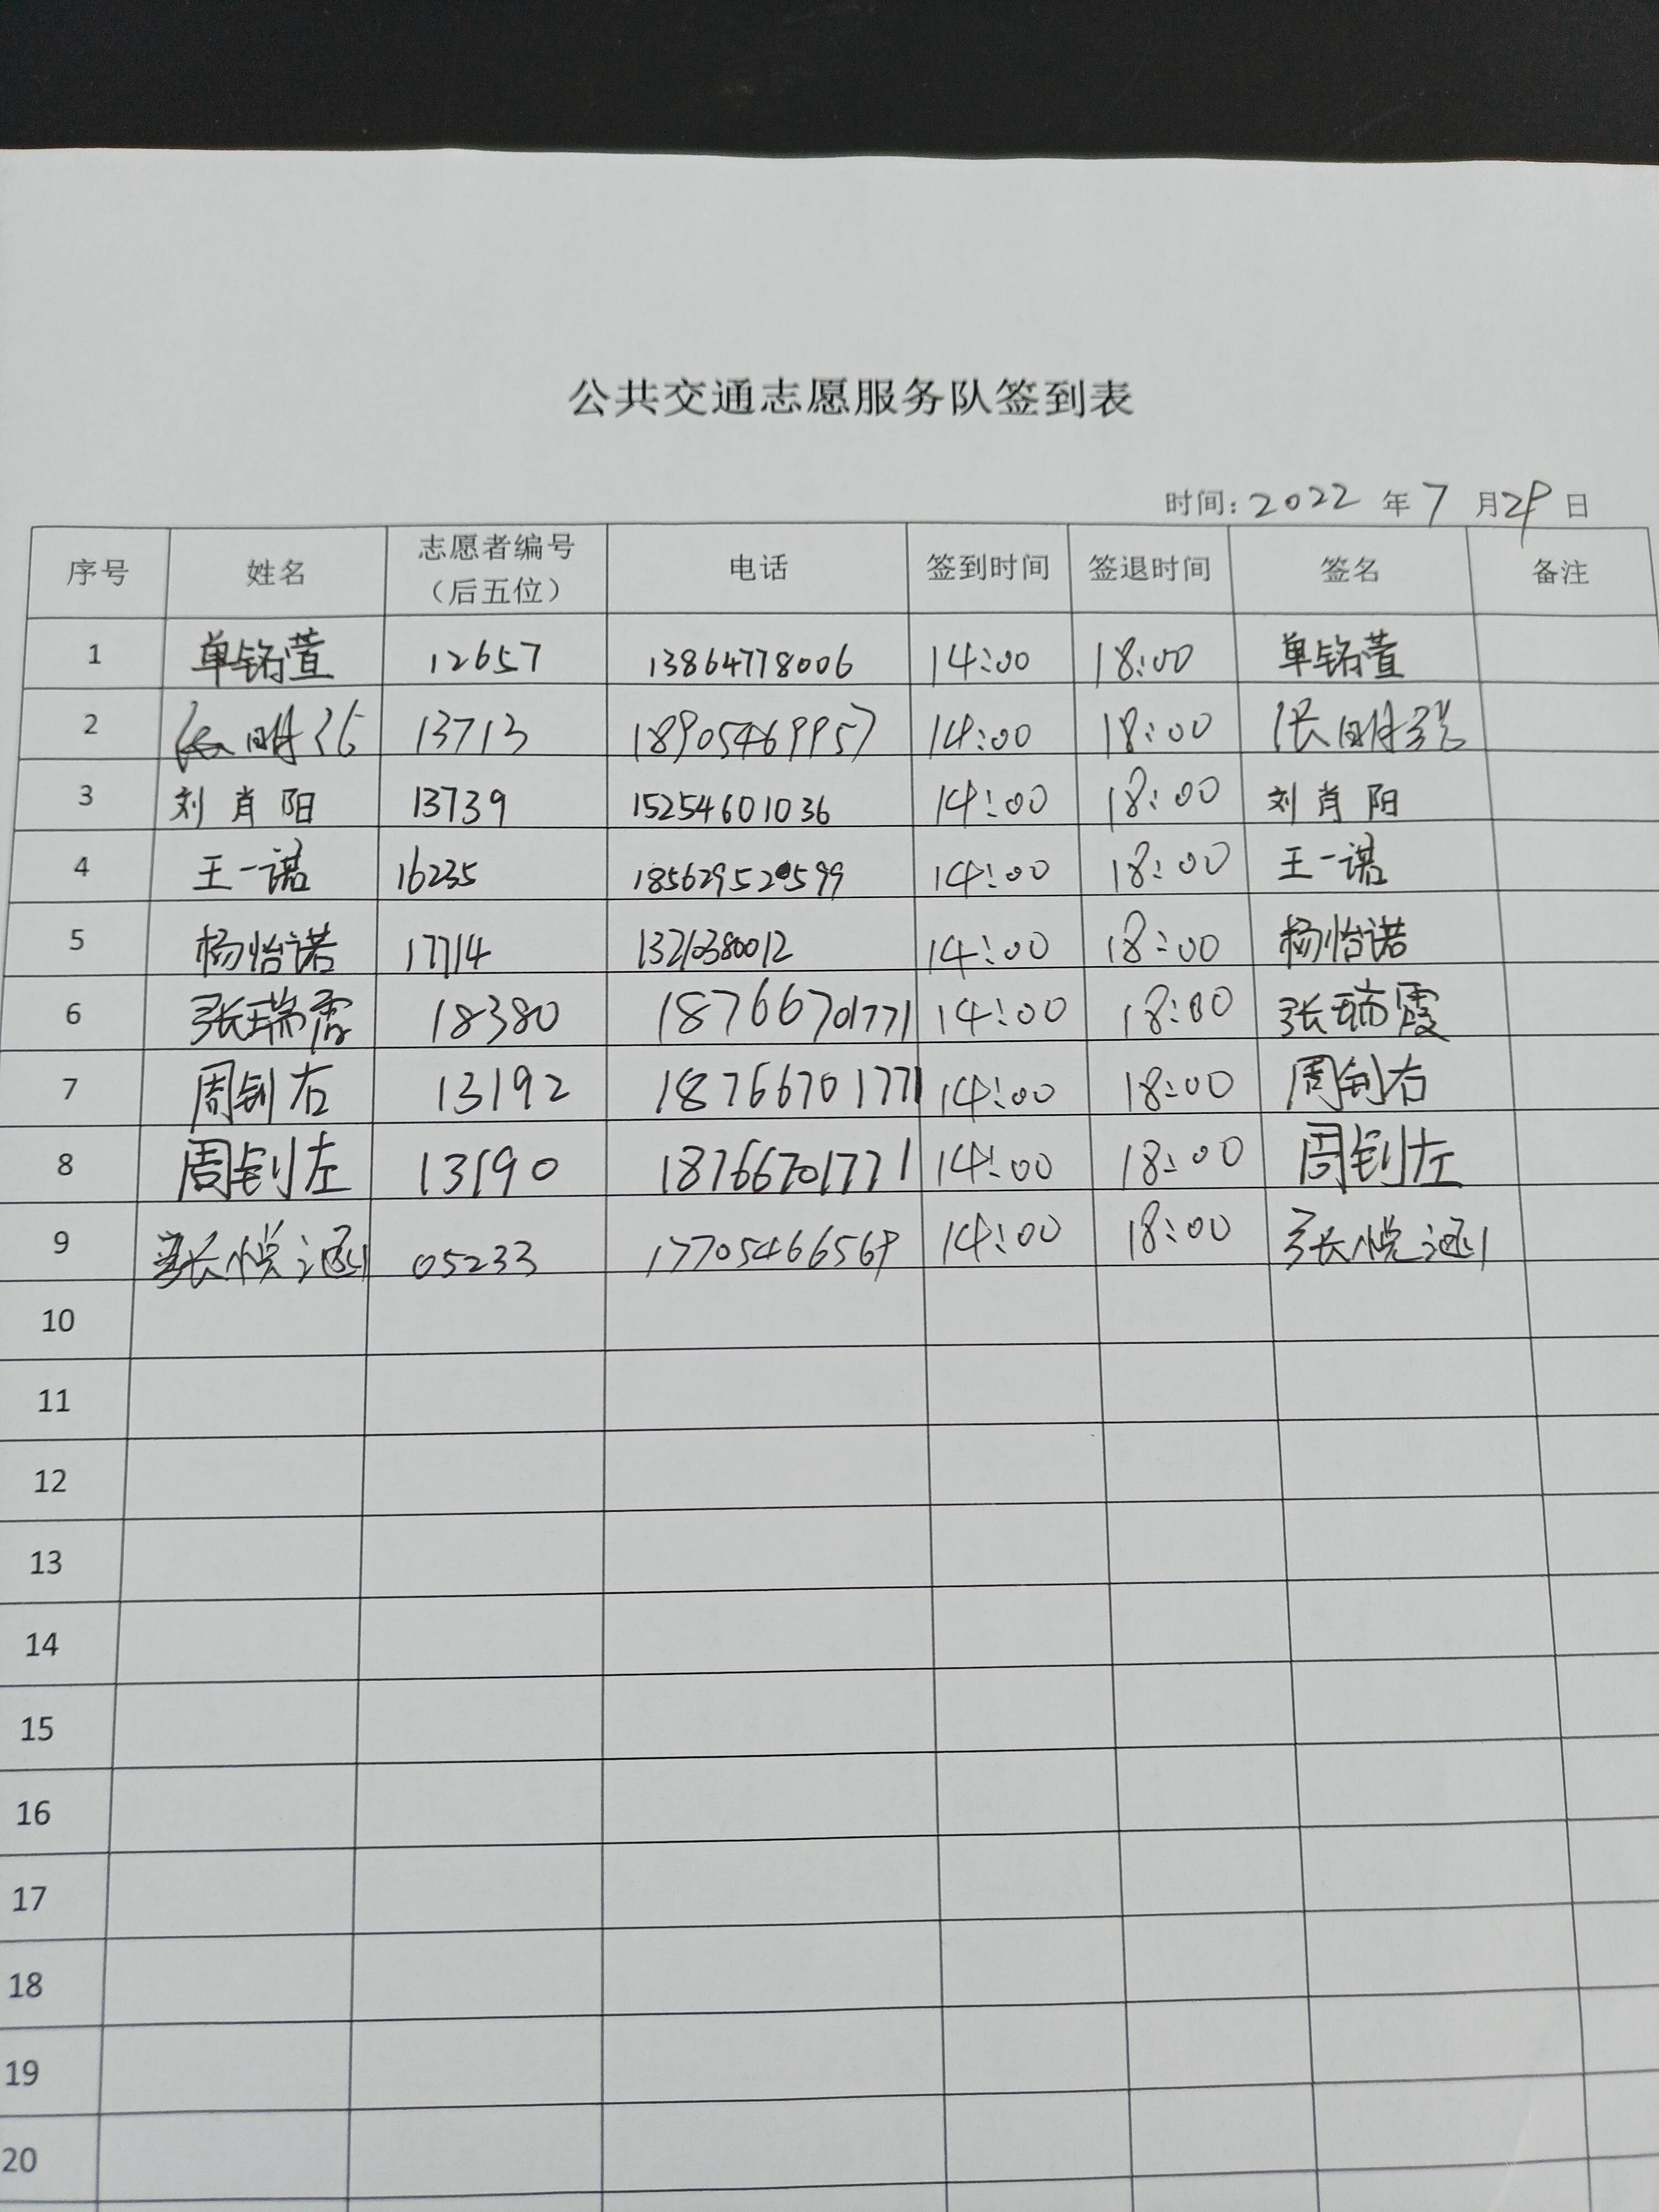 公共交通志愿服务队签到表
时间: 2022 年 7 月 29 日
序号 姓名 志愿者编号（后五位） 电话 签到时间 签退时间 签名 备注
1 单铭萱 12657 13864778006 14:00 18:00 单铭萱
2 13713 18905469957 14:00 18:00
3 刘肖阳 13739 15254601036 14:00 18:00 刘肖阳
4 王一诺 16235 14:00 18:00 王一诺
5 杨怡诺 17714 13210380012 14:00 18:00 杨怡诺
6 张瑞霞 18380 18766701771 14:00 18:00 张瑞霞
7 周钊右 13192 18766701771 14:00 18:00 周钊右
8 周钊左 13190 18766701771 14:00 18:00 周钊左
9 张悦涵 05233 17705466569 14:00 18:00 张悦涵
10
11
12
13
14
15
16
17
18
19
20